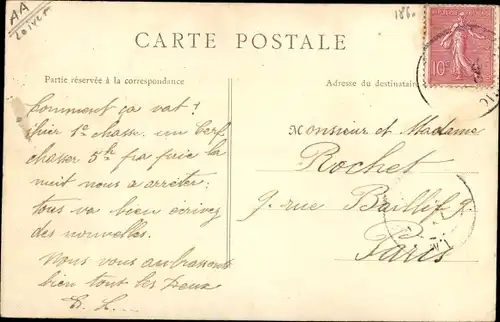 AA
1860
CARTE POSTALE
Partie réservée à la correspondance
Adresse du destinataire
10
Comment ça vat?
hier 1e chasse. un cerf
chasser 5h la
nuit nous a arrêter.
tous va bien écrivez
des nouvelles.
Nous vous embrassons
bien tout les deux
E. L.
Monsieur et Madame
Rochet
9. rue Baillif 9.
Paris